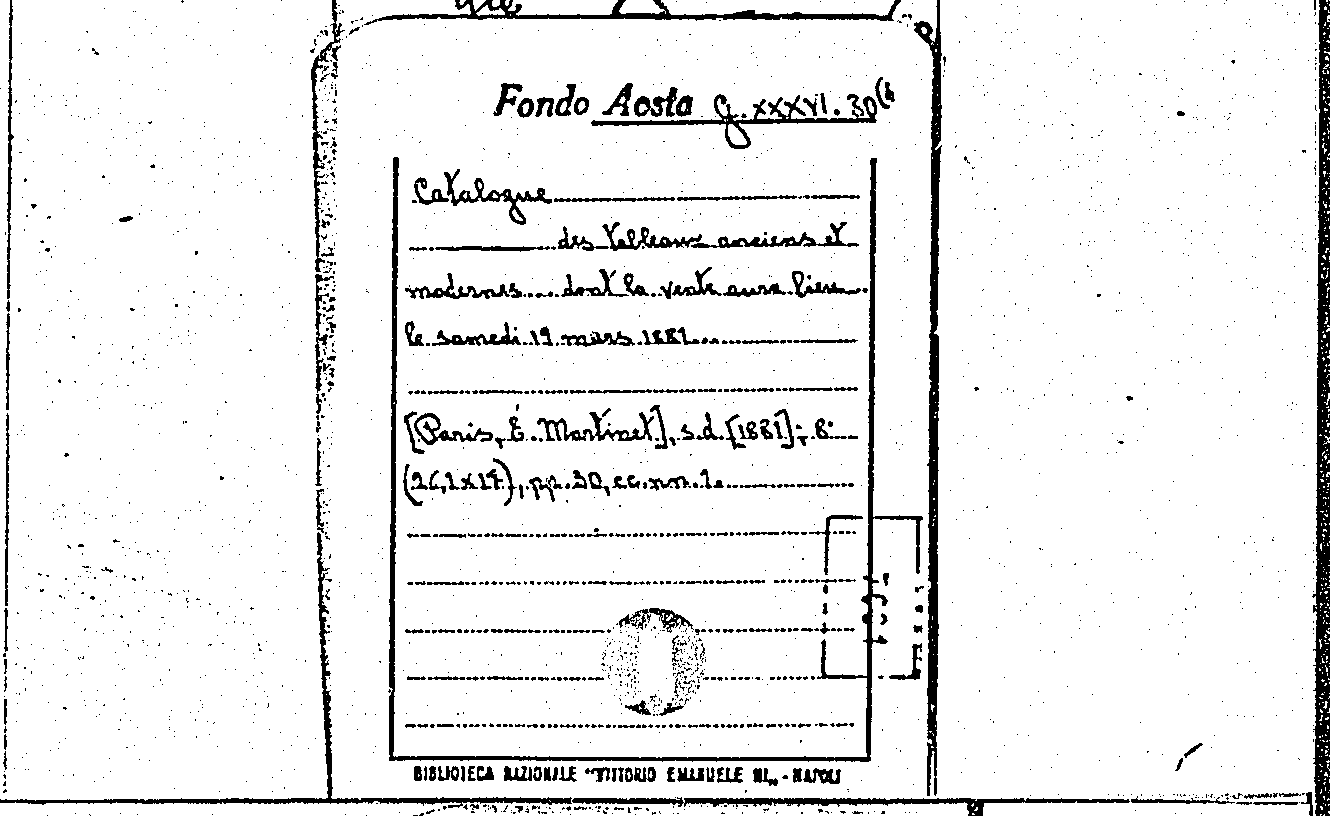 Fondo Aosta g. XXXVI. 30(4
Catalogue
des tableaux anciens et
modernes.... dont la vente aura lieu
le samedi 19 mars 1881...
[Paris, É. Martinet], s.d. [1881]; 8°
(26,1x17), pp. 30, cc. nn. 1.
BIBLIOTECA NAZIONALE "VITTORIO EMANUELE III„ - NAPOLI